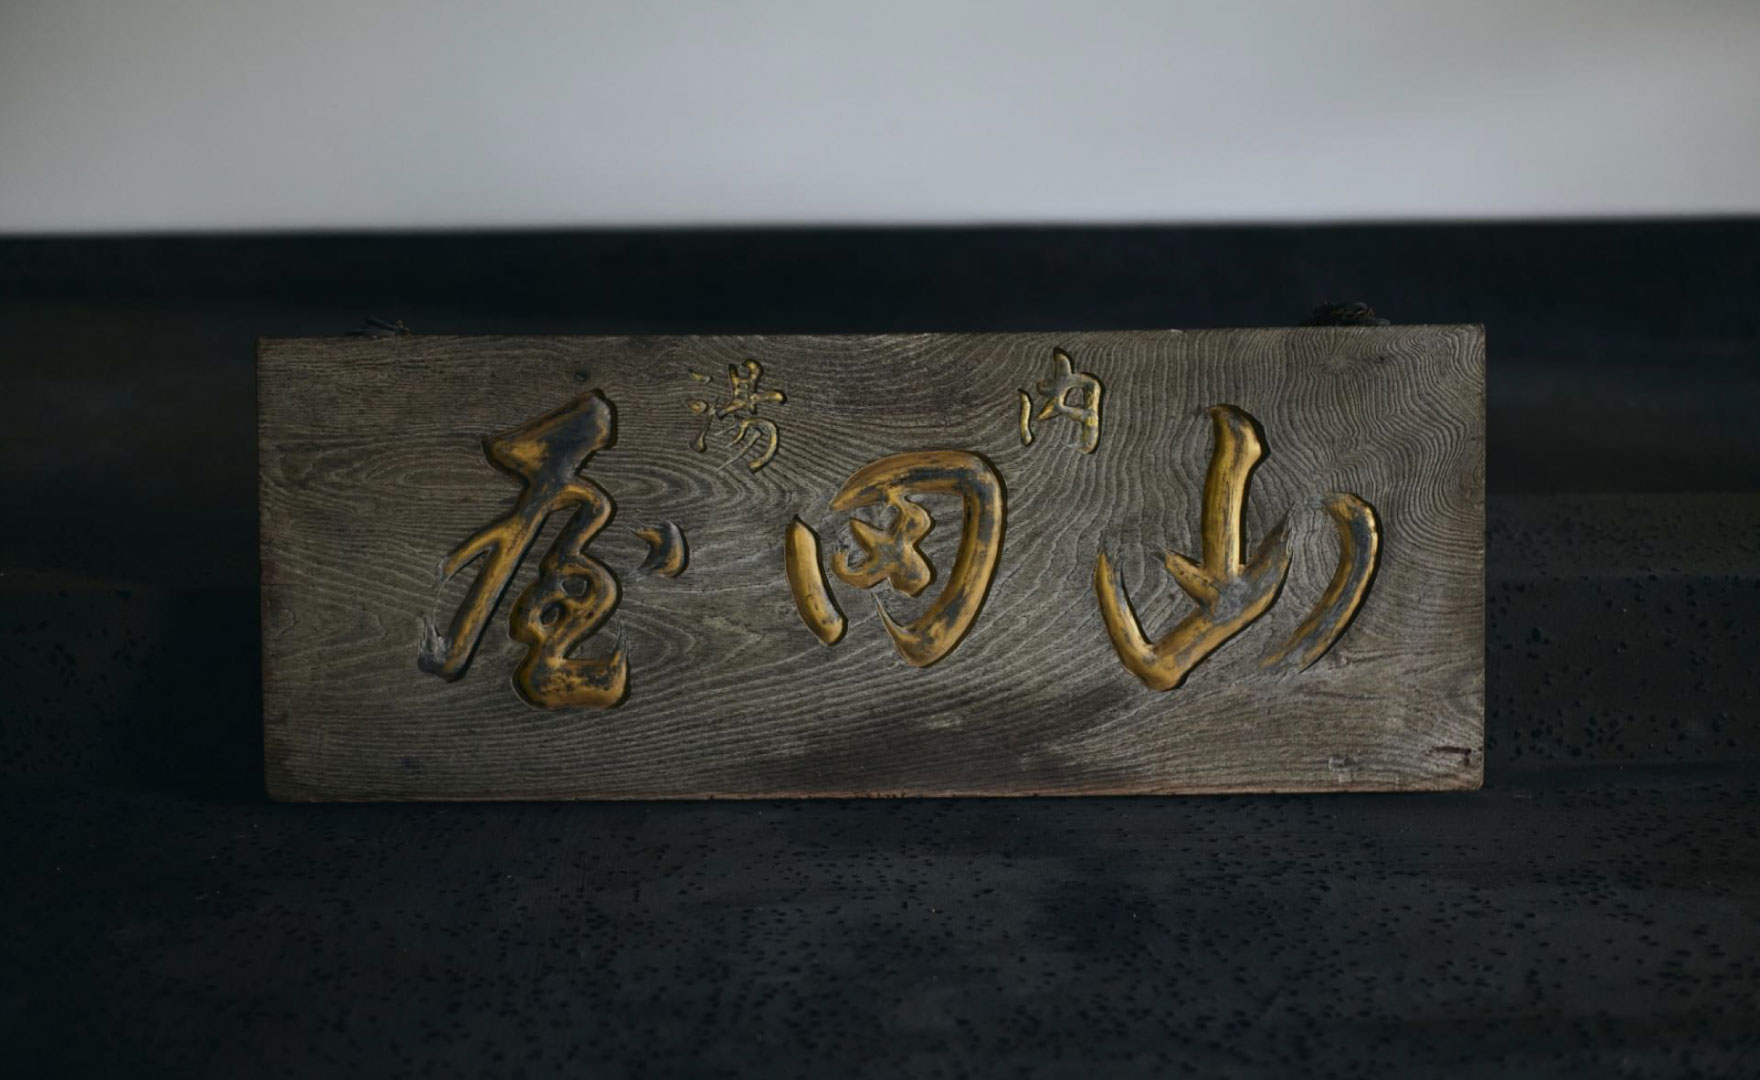 内湯
山田屋